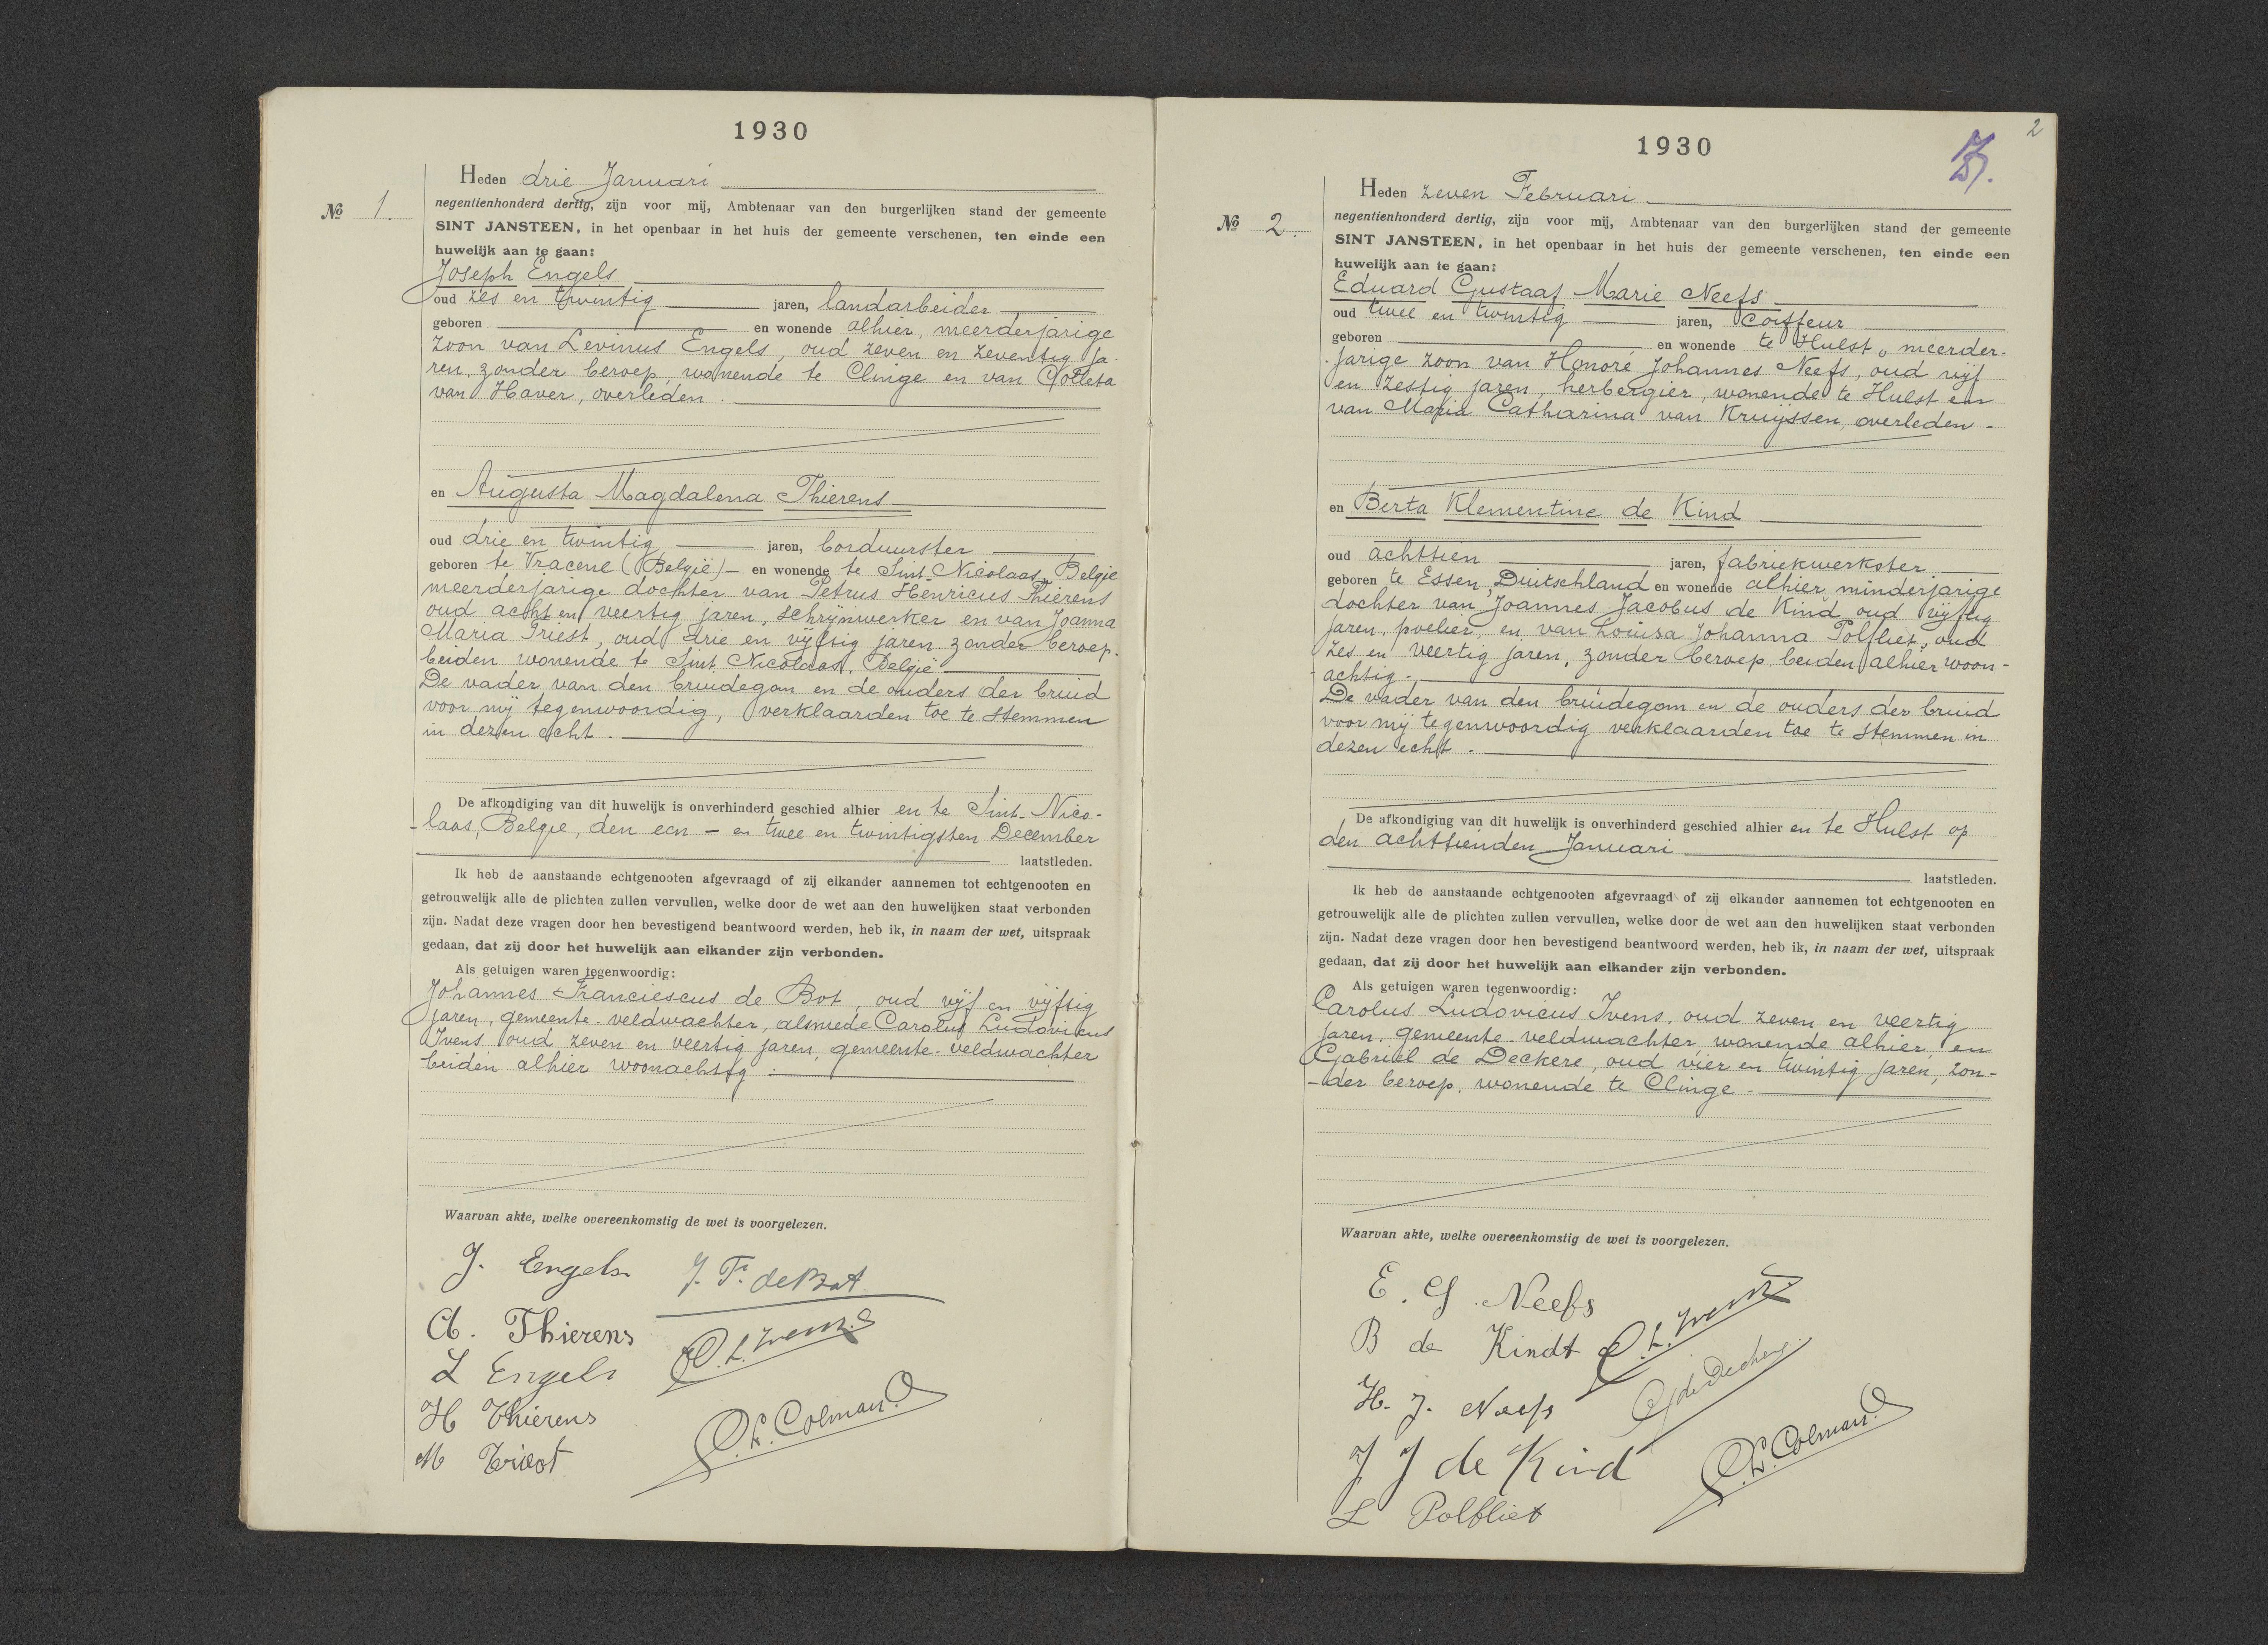 1930
Heden drie Januari
No 1.
negentienhonderd dertig, zijn voor mij, Ambtenaar van den burgerlijken stand der gemeente
SINT JANSTEEN, in het openbaar in het huis der gemeente verschenen, ten einde een
huwelijk aan te gaan:
Joseph Engels
oud zes en twintig jaren, landarbeider
geboren en wonende alhier, meerderjarige
zoon van Levinus Engels, oud zeven en zeventig ja-
ren, zonder beroep, wonende te Clinge en van Colleta
van Haver, overleden.
en Augusta Magdalena Thierens
oud drie en twintig jaren, borduurster
geboren te Vracene (België) en wonende te Sint Nicolaas, België
meerderjarige dochter van Petrus Henricus Thierens
oud acht en veertig jaren, schrijnwerker en van Joanna
Maria Triest, oud drie en vijftig jaren, zonder beroep,
beiden wonende te Sint Nicolaas, België
De vader van den bruidegom en de ouders der bruid
voor mij tegenwoordig, verklaarden toe te stemmen
in dezen echt.
De afkondiging van dit huwelijk is onverhinderd geschied alhier en te Sint-Nico-
-laas, België, den een - en twee en twintigsten December
laatstleden.
Ik heb de aanstaande echtgenooten afgevraagd of zij elkander aannemen tot echtgenooten en
getrouwelijk alle de plichten zullen vervullen, welke door de wet aan den huwelijken staat verbonden
zijn. Nadat deze vragen door hen bevestigend beantwoord werden, heb ik, in naam der wet, uitspraak
gedaan, dat zij door het huwelijk aan elkander zijn verbonden.
Als getuigen waren tegenwoordig:
Johannes Franciescus de Bot, oud vijf en vijftig
jaren, gemeente-veldwachter, alsmede Carolus Ludovicus
Ivens oud zeven en veertig jaren, gemeente-veldwachter
beiden alhier woonachtig.
Waarvan akte, welke overeenkomstig de wet is voorgelezen.
J. Engels J. F. de Bot
A. Thierens C. L. Ivens
L Engels
H Thierens C. L. Colman
M
2
1930
Heden zeven Februari
No 2.
negentienhonderd dertig, zijn voor mij, Ambtenaar van den burgerlijken stand der gemeente
SINT JANSTEEN, in het openbaar in het huis der gemeente verschenen, ten einde een
huwelijk aan te gaan:
Eduard Gustaaf Marie Neefs
oud twee en twintig jaren, Coiffeur
geboren en wonende te Hulst, meerder-
jarige zoon van Honoré Johannes Neefs, oud vijf
en zestig jaren, herbergier, wonende te Hulst en
van Maria Catharina van Kruijssen, overleden -
en Berta Klementine de Kind
oud achttien jaren, fabriekwerkster
geboren te Essen, Duitschland en wonende alhier, minderjarige
dochter van Joannes Jacobus de Kind oud vijftig
jaren, poelier, en van Louisa Johanna Polfliet, oud
zes en veertig jaren, zonder beroep, beiden alhier woon-
-achtig.
De vader van den bruidegom en de ouders der bruid
voor mij tegenwoordig verklaarden toe te stemmen in
dezen echt.
De afkondiging van dit huwelijk is onverhinderd geschied alhier en te Hulst op
den achttienden Januari
laatstleden.
Ik heb de aanstaande echtgenooten afgevraagd of zij elkander aannemen tot echtgenooten en
getrouwelijk alle de plichten zullen vervullen, welke door de wet aan den huwelijken staat verbonden
zijn. Nadat deze vragen door hen bevestigend beantwoord werden, heb ik, in naam der wet, uitspraak
gedaan, dat zij door het huwelijk aan elkander zijn verbonden.
Als getuigen waren tegenwoordig:
Carolus Ludovicus Ivens, oud zeven en veertig
jaren, gemeente-veldwachter wonende alhier, en
Gabriël de Deckere, oud vier en twintig jaren, zon-
-der beroep, wonende te Clinge.
Waarvan akte, welke overeenkomstig de wet is voorgelezen.
E. G. Neefs
B de Kindt C. L. Ivens
H. J. Neefs
J J de Kind C. L. Colman
L Polfliet